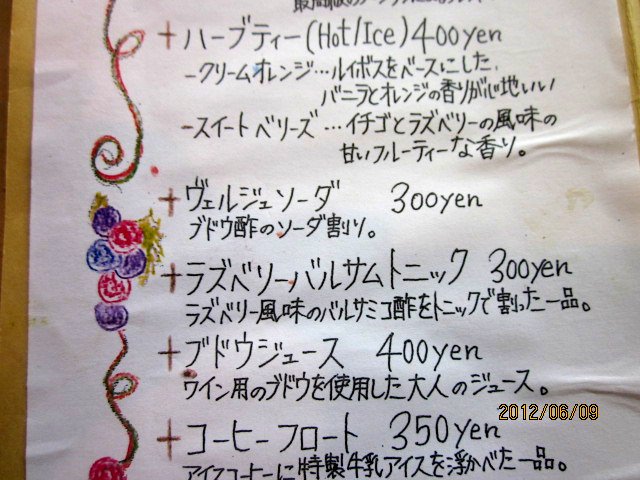 +ハーブティー(Hot/Ice)400yen
-クリームオレンジ…ルイボスをベースにした、
バニラとオレンジの香りが心地いい
-スイートベリーズ…イチゴとラズベリーの風味の
甘いフルーティーな香り。
+ヴェルジュソーダ 300yen
ブドウ酢のソーダ割り。
+ラズベリーバルサムトニック 300yen
ラズベリー風味のバルサミコ酢をトニックで割った一品。
+ブドウジュース 400yen
ワイン用のブドウを使用した大人のジュース。
2012/06/09
+コーヒーフロート 350yen
アイスコーヒーに特製牛乳アイスを浮かべた一品。